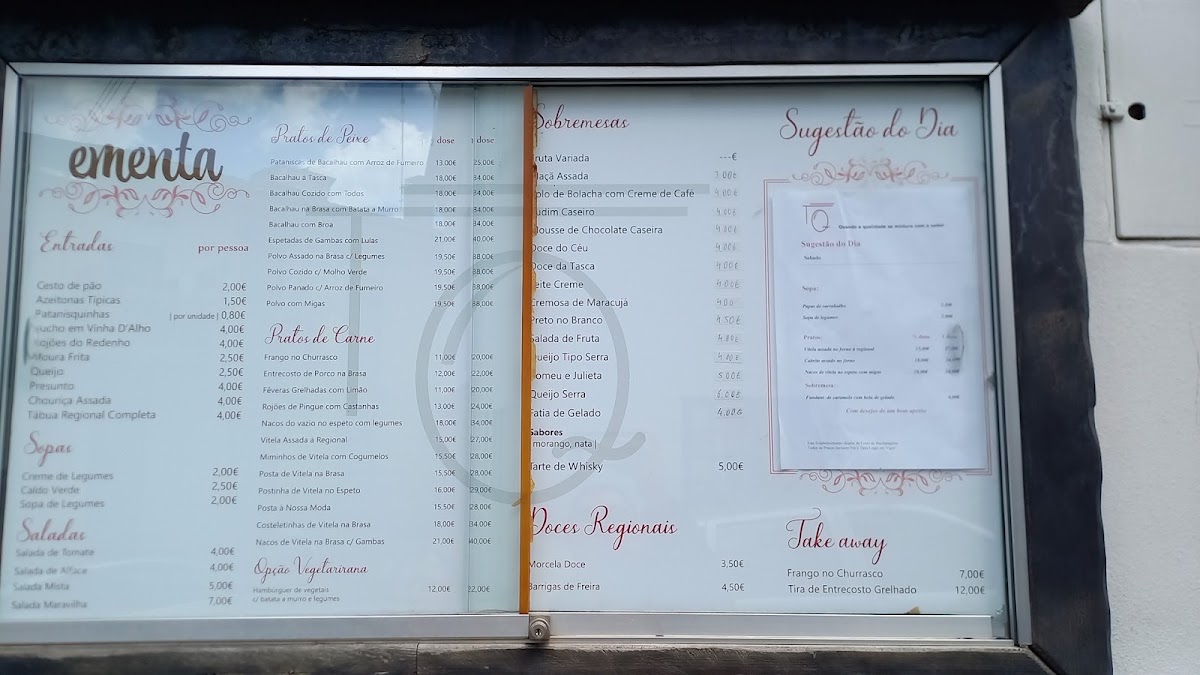 ementa
Entradas por pessoa
Cesto de pão 2,00€
Azeitonas Típicas 1,50€
Patanisquinhas | por unidade | 0,80€
ucho em Vinha D'Alho 4,00€
Rojões do Redenho 4,00€
Moura Frita 2,50€
Queijo 2,50€
Presunto 4,00€
Chouriça Assada 4,00€
Tábua Regional Completa 4,00€
Sopas
Creme de Legumes 2,00€
Caldo Verde 2,50€
Sopa de Legumes 2,00€
Saladas
Salada de Tomate 4,00€
Salada de Alface 4,00€
Salada Mista 5,00€
Salada Maravilha 7,00€
Pratos de Peixe dose dose
Pataniscas de Bacalhau com Arroz de Fumeiro 13,00€ 25,00€
Bacalhau à Tasca 18,00€ 34,00€
Bacalhau Cozido com Todos 18,00€ 34,00€
Bacalhau na Brasa com Batata a Murro 18,00€ 34,00€
Bacalhau com Broa 18,00€ 34,00€
Espetadas de Gambas com Lulas 21,00€ 40,00€
Polvo Assado na Brasa c/ Legumes 19,50€ 38,00€
Polvo Cozido c/ Molho Verde 19,50€ 38,00€
Polvo Panado c/ Arroz de Fumeiro 19,50€ 38,00€
Polvo com Migas 19,50€ 38,00€
Pratos de Carne
Frango no Churrasco 11,00€ 20,00€
Entrecosto de Porco na Brasa 12,00€ 22,00€
Fêveras Grelhadas com Limão 11,00€ 20,00€
Rojões de Pingue com Castanhas 13,00€ 24,00€
Nacos do vazio no espeto com legumes 18,00€ 34,00€
Vitela Assada à Regional 15,00€ 27,00€
Miminhos de Vitela com Cogumelos 15,50€ 28,00€
Posta de Vitela na Brasa 15,50€ 28,00€
Postinha de Vitela no Espeto 16,00€ 29,00€
Posta à Nossa Moda 15,50€ 28,00€
Costeletinhas de Vitela na Brasa 18,00€ 34,00€
Nacos de Vitela na Brasa c/ Gambas 21,00€ 40,00€
Opção Vegetarirana
Hambúrguer de vegetais
c/ batata a murro e legumes 12,00€ 22,00€
Sobremesas
ruta Variada ---€
Maçã Assada 3,00€
olo de Bolacha com Creme de Café 4,00€
udim Caseiro 4,00€
ousse de Chocolate Caseira 4,00€
Doce do Céu 4,00€
Doce da Tasca 4,00€
eite Creme 4,00€
Cremosa de Maracujá 4,00
Preto no Branco 4,50€
Salada de Fruta 4,00€
Queijo Tipo Serra 4,00€
omeu e Julieta 5,00€
Queijo Serra 5,00€
Fatia de Gelado 4,00€
Sabores
| morango, nata |
Tarte de Whisky 5,00€
Doces Regionais
Morcela Doce 3,50€
Barrigas de Freira 4,50€
Sugestão do Dia
TQ
Quando a qualidade se mistura com o sabor
Sugestão do Dia
Sabado
Sopa:
Papas de sarrabulho
Sopa de legumes
Pratos:
Vitela assada no forno à regional
Cabrito assado no forno
Nacos de vitela no espeto com migas
Sobremesa:
Fondant de caramelo com bola de gelado
Com desejos de um bom apetite
Take away
Frango no Churrasco 7,00€
Tira de Entrecosto Grelhado 12,00€